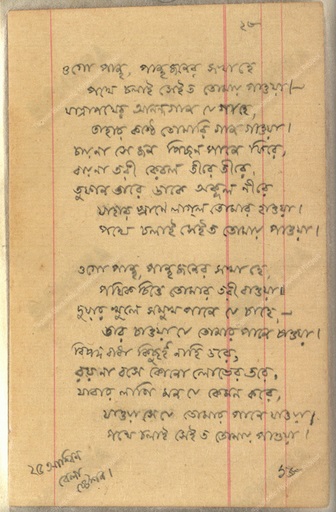 ওগো পান্থ, পান্থজনের সখা হে
পথে চলাই সেইত তোমায় পাওয়া।—
যাত্রাপথের আনন্দগান যে গাহে,
তাহার কণ্ঠে তোমারি গান গাওয়া।
চায়না সে জন পিছন পানে ফিরে,
বায়না তরী কেবল তীরে তীরে,
তুফান তারে ডাকে অকূল নীরে
যাহার প্রাণে লাগ্‌ল তোমার হাওয়া।
পথে চলাই সেইত তোমায় পাওয়া।
ওগো পান্থ, পান্থজনের সখা হে,
পথিক চিত্তে তোমার তরী বাওয়া।
দুয়ার খুলে সমুখ পানে যে চাহে,—
তার চাওয়া যে তোমার পানে চাওয়া।
বিপদ বাধা কিছুই নাহি ডরে,
রয়না বসে কোনো লাভের তরে,
যাবার লাগি মন যে কেমন করে,
যাওয়া সে যে তোমার পানে যাওয়া।
পথে চলাই সেইত তোমায় পাওয়া।
২৫ আশ্বিন
বেলা
ষ্টেশন।